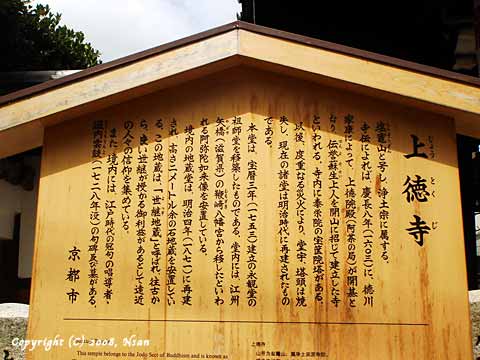 上徳寺
じょうとくじ
塩竈山と号し、浄土宗に属する。
寺伝によれば、慶長八年(一六〇三)に、徳川
家康によって、上徳院殿(阿茶の局)が開基と
なり、伝誉蘇生上人を開山に招じて建立した寺
といわれる。寺内に泰栄院の宝篋院塔がある。
以後、度重なる災火により、堂宇、塔頭は焼
失し、現在の諸堂は明治時代に再建されたもの
である。
本堂は、宝暦三年(一七五三)建立の永観堂の
祖師堂を移築したものである。堂内には、江州
矢橋(滋賀県)の鞭崎八幡宮から移したといわ
れる阿弥陀如来像を安置している。
境内の地蔵堂は、明治四年(一八七一)に再建
され、高さ二メートル余の石地蔵を安置してい
る。この地蔵は「世継地蔵」と呼ばれ、往古か
ら、良い世継が授かる御利益があるとして遠近
の人々の信仰を集めている。
また、境内には、江戸時代の冠句の唱導者、
雲鼓(一七二八年没)の句碑及び墓がある。
京都市
This temple belongs to the Jodo Sect of Buddhism and is known as
上徳寺
Copyright (C) 2008, N3an